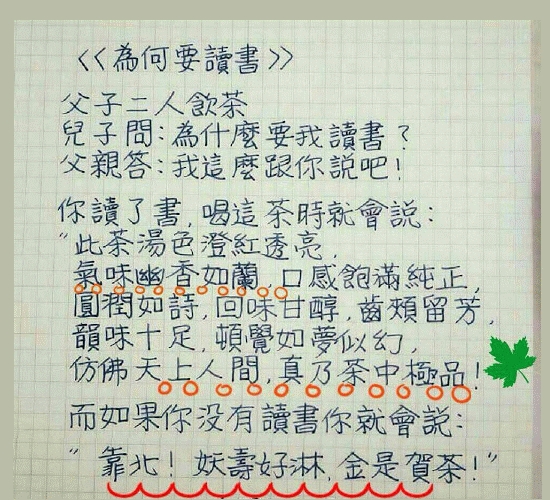 <<為何要讀書>>
父子二人飲茶
兒子問:為什麼要我讀書?
父親答:我這麼跟你說吧!
你讀了書,喝這茶時就會說:
"此茶湯色澄紅透亮,
氣味幽香如蘭,口感飽滿純正,
圓潤如詩,回味甘醇,齒頰留芳,
韻味十足,頓覺如夢似幻,
仿佛天上人間,真乃茶中極品!
而如果你没有讀書你就會說:
"靠北!妖壽好淋,金是賀茶!"